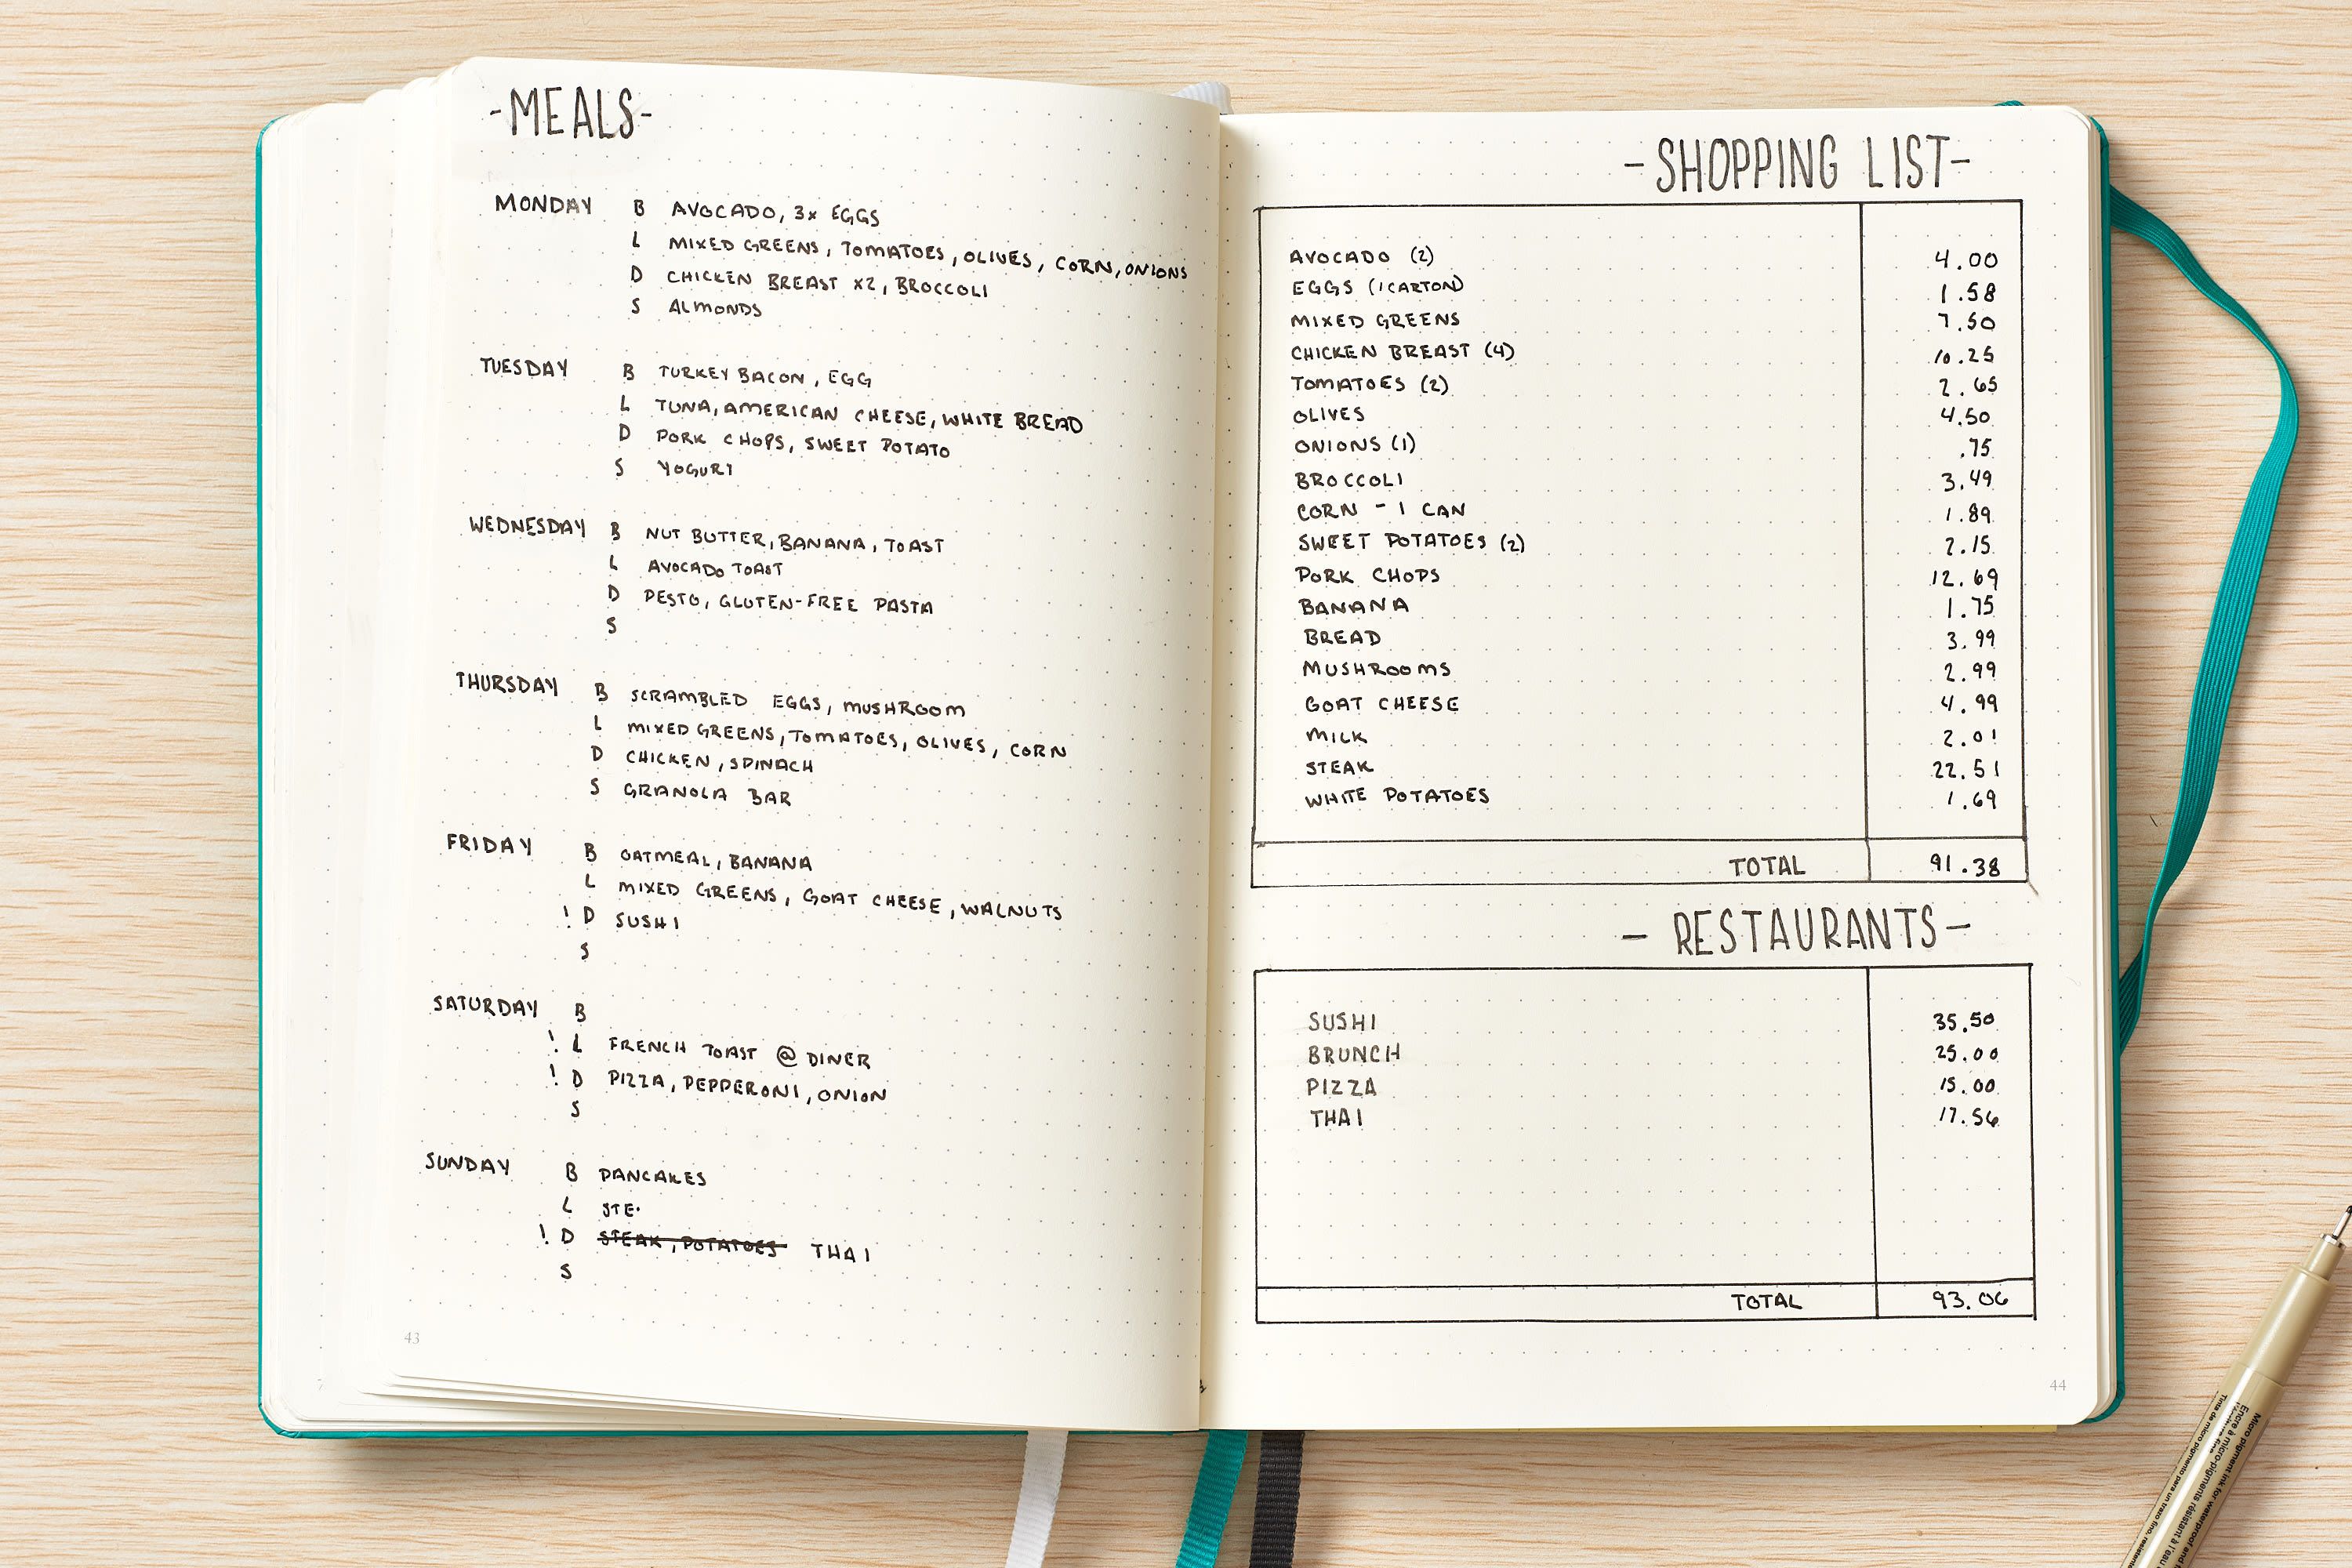 -MEALS-
MONDAY B AVOCADO, 3x EGGS
L MIXED GREENS, TOMATOES, OLIVES, CORN, ONIONS
D CHICKEN BREAST X2, BROCCOLI
S ALMONDS
TUESDAY B TURKEY BACON, EGG
L TUNA, AMERICAN CHEESE, WHITE BREAD
D PORK CHOPS, SWEET POTATO
S YOGURT
WEDNESDAY B NUT BUTTER, BANANA, TOAST
L AVOCADO TOAST
D PESTO, GLUTEN-FREE PASTA
S
THURSDAY B SCRAMBLED EGGS, MUSHROOM
L MIXED GREENS, TOMATOES, OLIVES, CORN
D CHICKEN, SPINACH
S GRANOLA BAR
FRIDAY B OATMEAL, BANANA
L MIXED GREENS, GOAT CHEESE, WALNUTS
! D SUSHI
S
SATURDAY B
! L FRENCH TOAST @ DINER
! D PIZZA, PEPPERONI, ONION
S
SUNDAY B PANCAKES
L
! D STEAK, POTATOES THAI
S
43
-SHOPPING LIST-
AVOCADO (2) 4.00
EGGS (1 CARTON) 1.58
MIXED GREENS 7.50
CHICKEN BREAST (4) 10.25
TOMATOES (2) 2.65
OLIVES 4.50
ONIONS (1) .75
BROCCOLI 3.49
CORN - 1 CAN 1.89
SWEET POTATOES (2) 2.15
PORK CHOPS 12.69
BANANA 1.75
BREAD 3.99
MUSHROOMS 2.99
GOAT CHEESE 4.99
MILK 2.01
STEAK 22.51
WHITE POTATOES 1.69
TOTAL 91.38
- RESTAURANTS-
SUSHI 35.50
BRUNCH 25.00
PIZZA 15.00
THAI 17.56
TOTAL 93.06
44